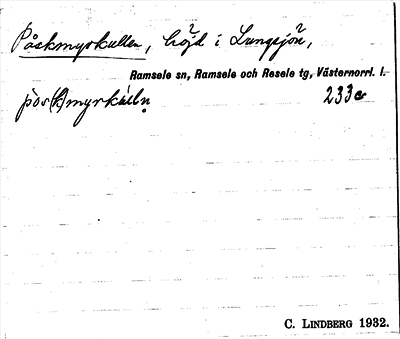 Påskmyrkullen, höjd i Lungsjön,
Ramsele sn, Ramsele och Resele tg, Västernorrl. l.
233c
C. LINDBERG 1932.